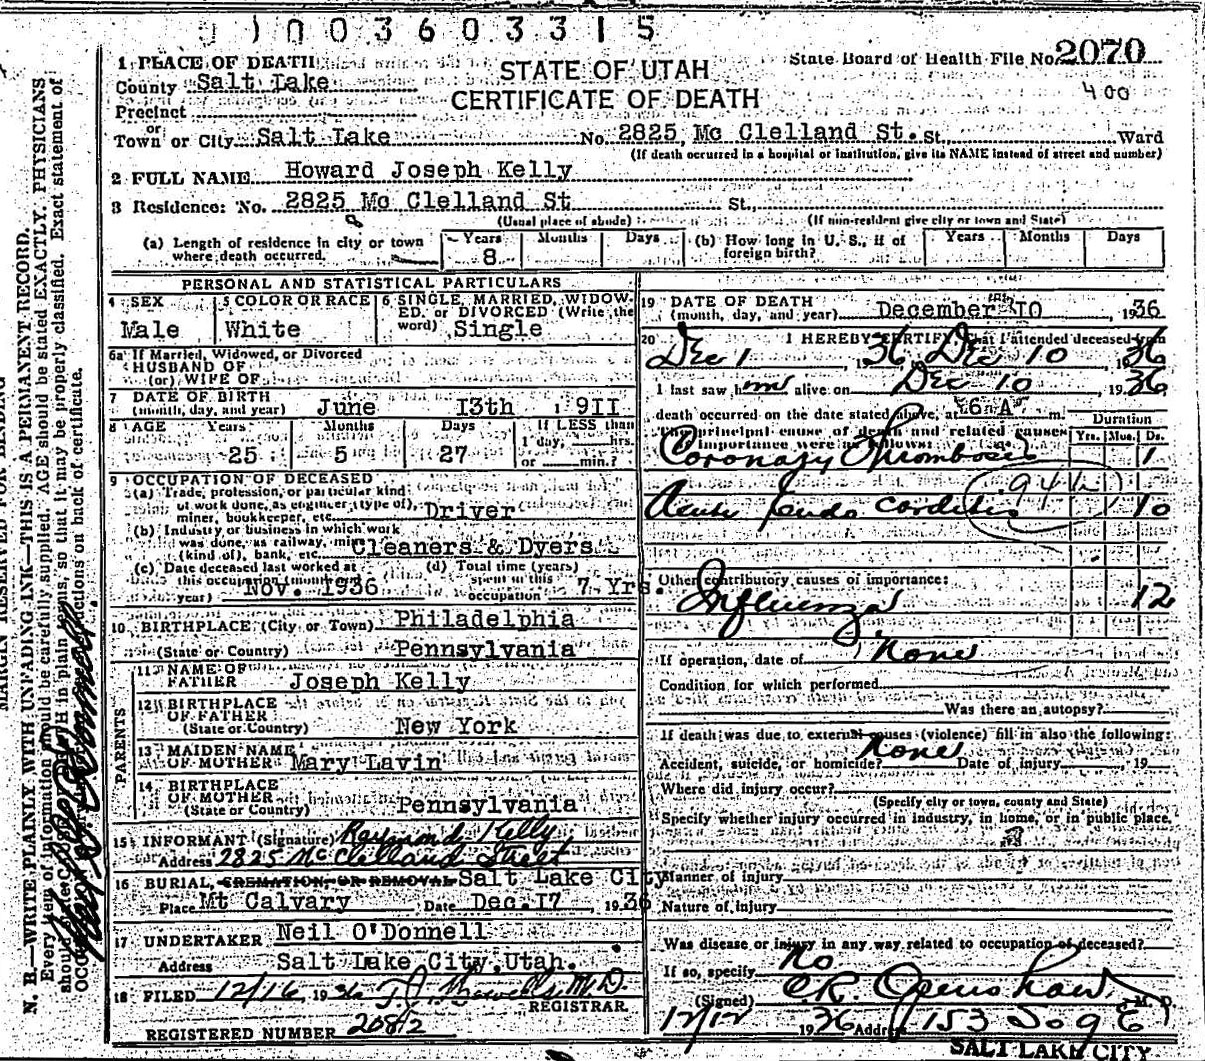 0100360331 5
1 PLACE OF DEATH
STATE OF UTAH
State Board of Health File No. 2070
County Salt Lake
CERTIFICATE OF DEATH
400
Precinct
or
Town or City Salt Lake No. 2825 Mc Clelland St. St., Ward
(If death occurred in a hospital or institution, give its NAME instead of street and number)
2 FULL NAME Howard Joseph Kelly
3 Residence: No. 2825 Mc Clelland St St.,
(Usual place of abode) (If non-resident give city or town and State)
(a) Length of residence in city or town where death occurred. Years 8 Months Days (b) How long in U. S., if of foreign birth? Years Months Days
PERSONAL AND STATISTICAL PARTICULARS
4 SEX Male
5 COLOR OR RACE White
6 SINGLE, MARRIED, WIDOWED, or DIVORCED (Write the word) Single
6a If Married, Widowed, or Divorced
HUSBAND OF
(or) WIFE OF
7 DATE OF BIRTH
(month, day, and year) June 13th 1911
8 AGE Years 25 Months 5 Days 27 If LESS than 1 day, hrs. or min.?
9 OCCUPATION OF DECEASED
(a) Trade, profession, or particular kind of work done, as engineer (type of), miner, bookkeeper, etc. Driver
(b) Industry or business in which work was done, as railway, mine (kind of), bank, etc. Cleaners & Dyers
(c) Date deceased last worked at this occupation (month and year) Nov. 1936
(d) Total time (years) spent in this occupation 7 Yrs.
10 BIRTHPLACE (City or Town) Philadelphia
(State or Country) Pennsylvania
PARENTS
11 NAME OF FATHER Joseph Kelly
12 BIRTHPLACE OF FATHER
(State or Country) New York
13 MAIDEN NAME OF MOTHER Mary Lavin
14 BIRTHPLACE OF MOTHER
(State or Country) Pennsylvania
15 INFORMANT (Signature) Raymond Kelly
Address 2825 McClelland Street
16 BURIAL, CREMATION, OR REMOVAL Salt Lake City
Place Mt Calvary Date Dec. 17 1936
17 UNDERTAKER Neil O'Donnell
Address Salt Lake City, Utah.
18 FILED 12/16 1936 M.D.
REGISTRAR.
REGISTERED NUMBER 2082
19 DATE OF DEATH
(month, day, and year) December 10 1936
20 I HEREBY CERTIFY, That I attended deceased from
Dec 1 1936, Dec 10 1936
I last saw him alive on Dec 10 1936
death occurred on the date stated above, at 6 A m.
The principal cause of death and related causes of importance were as follows:
Duration
Yrs. Mos. Ds.
Coronary Thrombosis 1
Acute Endo carditis 10
Other contributory causes of importance:
Influenza 12
If operation, date of None
Condition for which performed
Was there an autopsy?
If death was due to external causes (violence) fill in also the following:
Accident, suicide, or homicide? None Date of injury , 19
Where did injury occur?
(Specify city or town, county and State)
Specify whether injury occurred in industry, in home, or in public place.
Manner of injury
Nature of injury
Was disease or injury in any way related to occupation of deceased?
If so, specify No
(Signed) O.R. Openshaw M. D.
12/12 1936 Address 153 So 9 E
SALT LAKE CITY
MARGIN RESERVED FOR BINDING
N. B.—WRITE PLAINLY, WITH UNFADING INK—THIS IS A PERMANENT RECORD.
Every item of information should be carefully supplied. AGE should be stated EXACTLY. PHYSICIANS
should in plain terms, so that it may be properly classified. Exact statement of
on back of certificate.